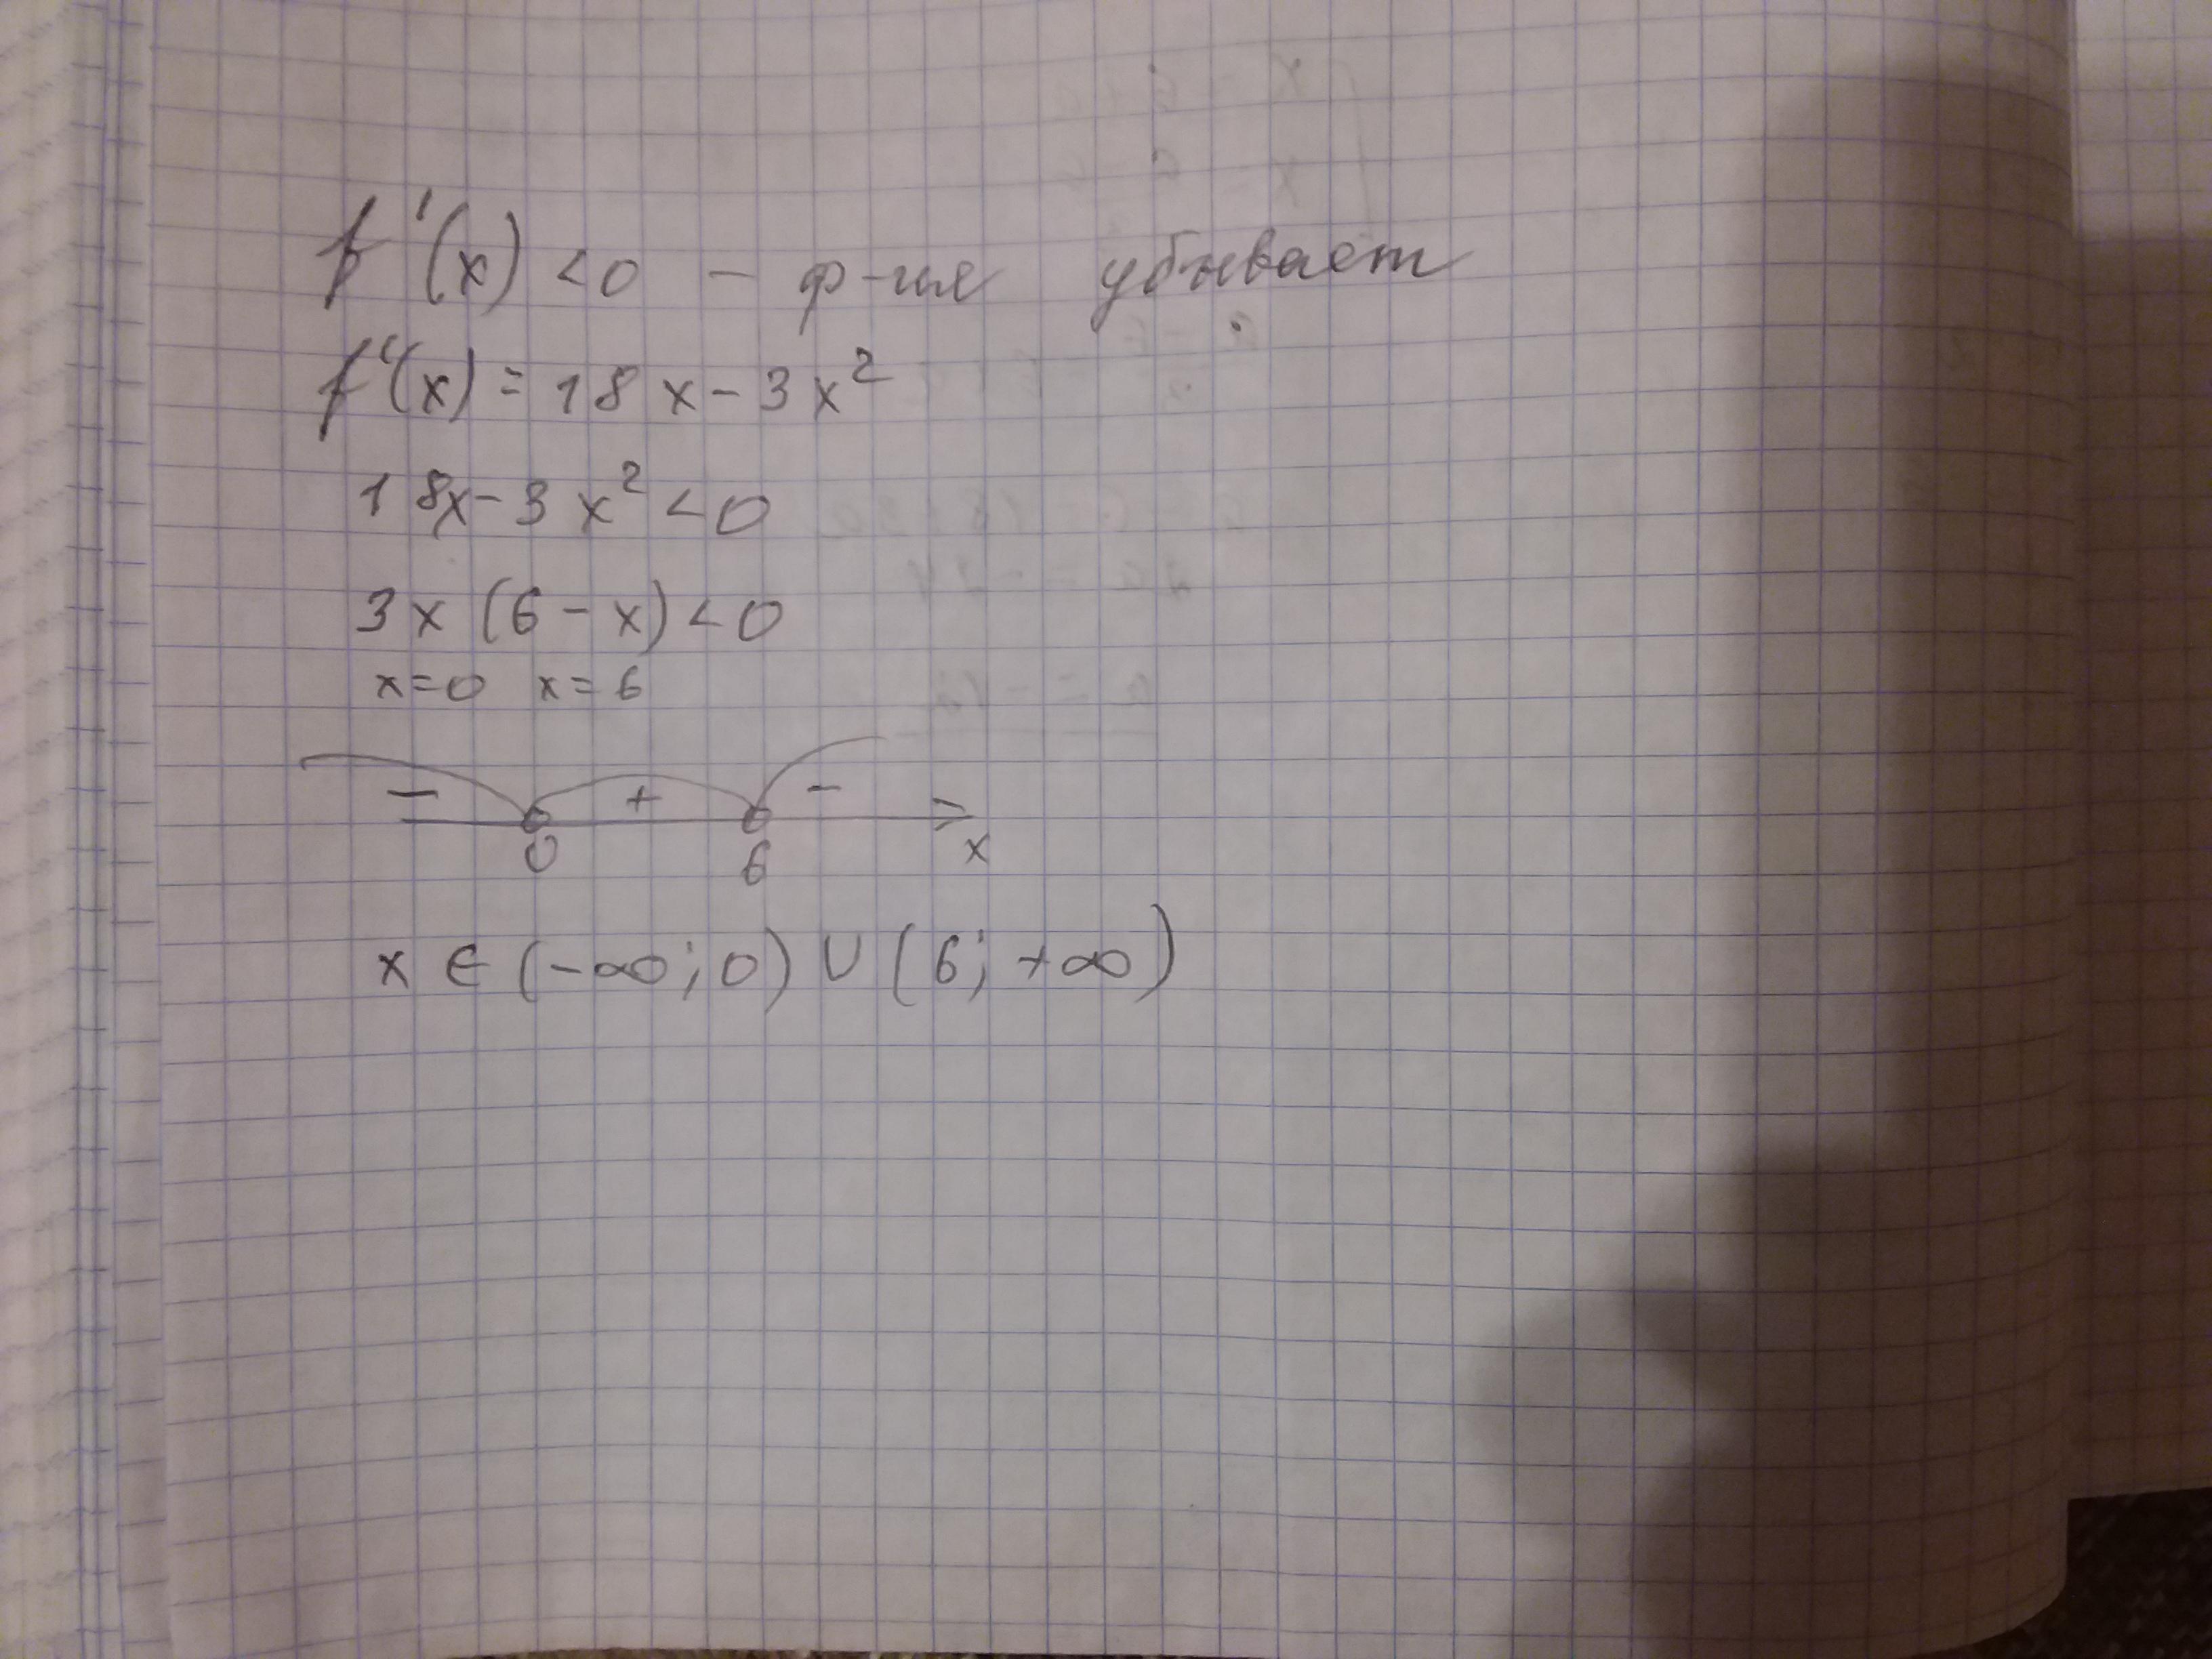 f'(x) <0 – ф-ция убывает
f'(x) = 18x - 3x²
18x - 3x² <0
3x (6 - x) <0
x=0 x=6
– + –
0 6 x
x ∈ (-∞; 0) ∪ (6; +∞)